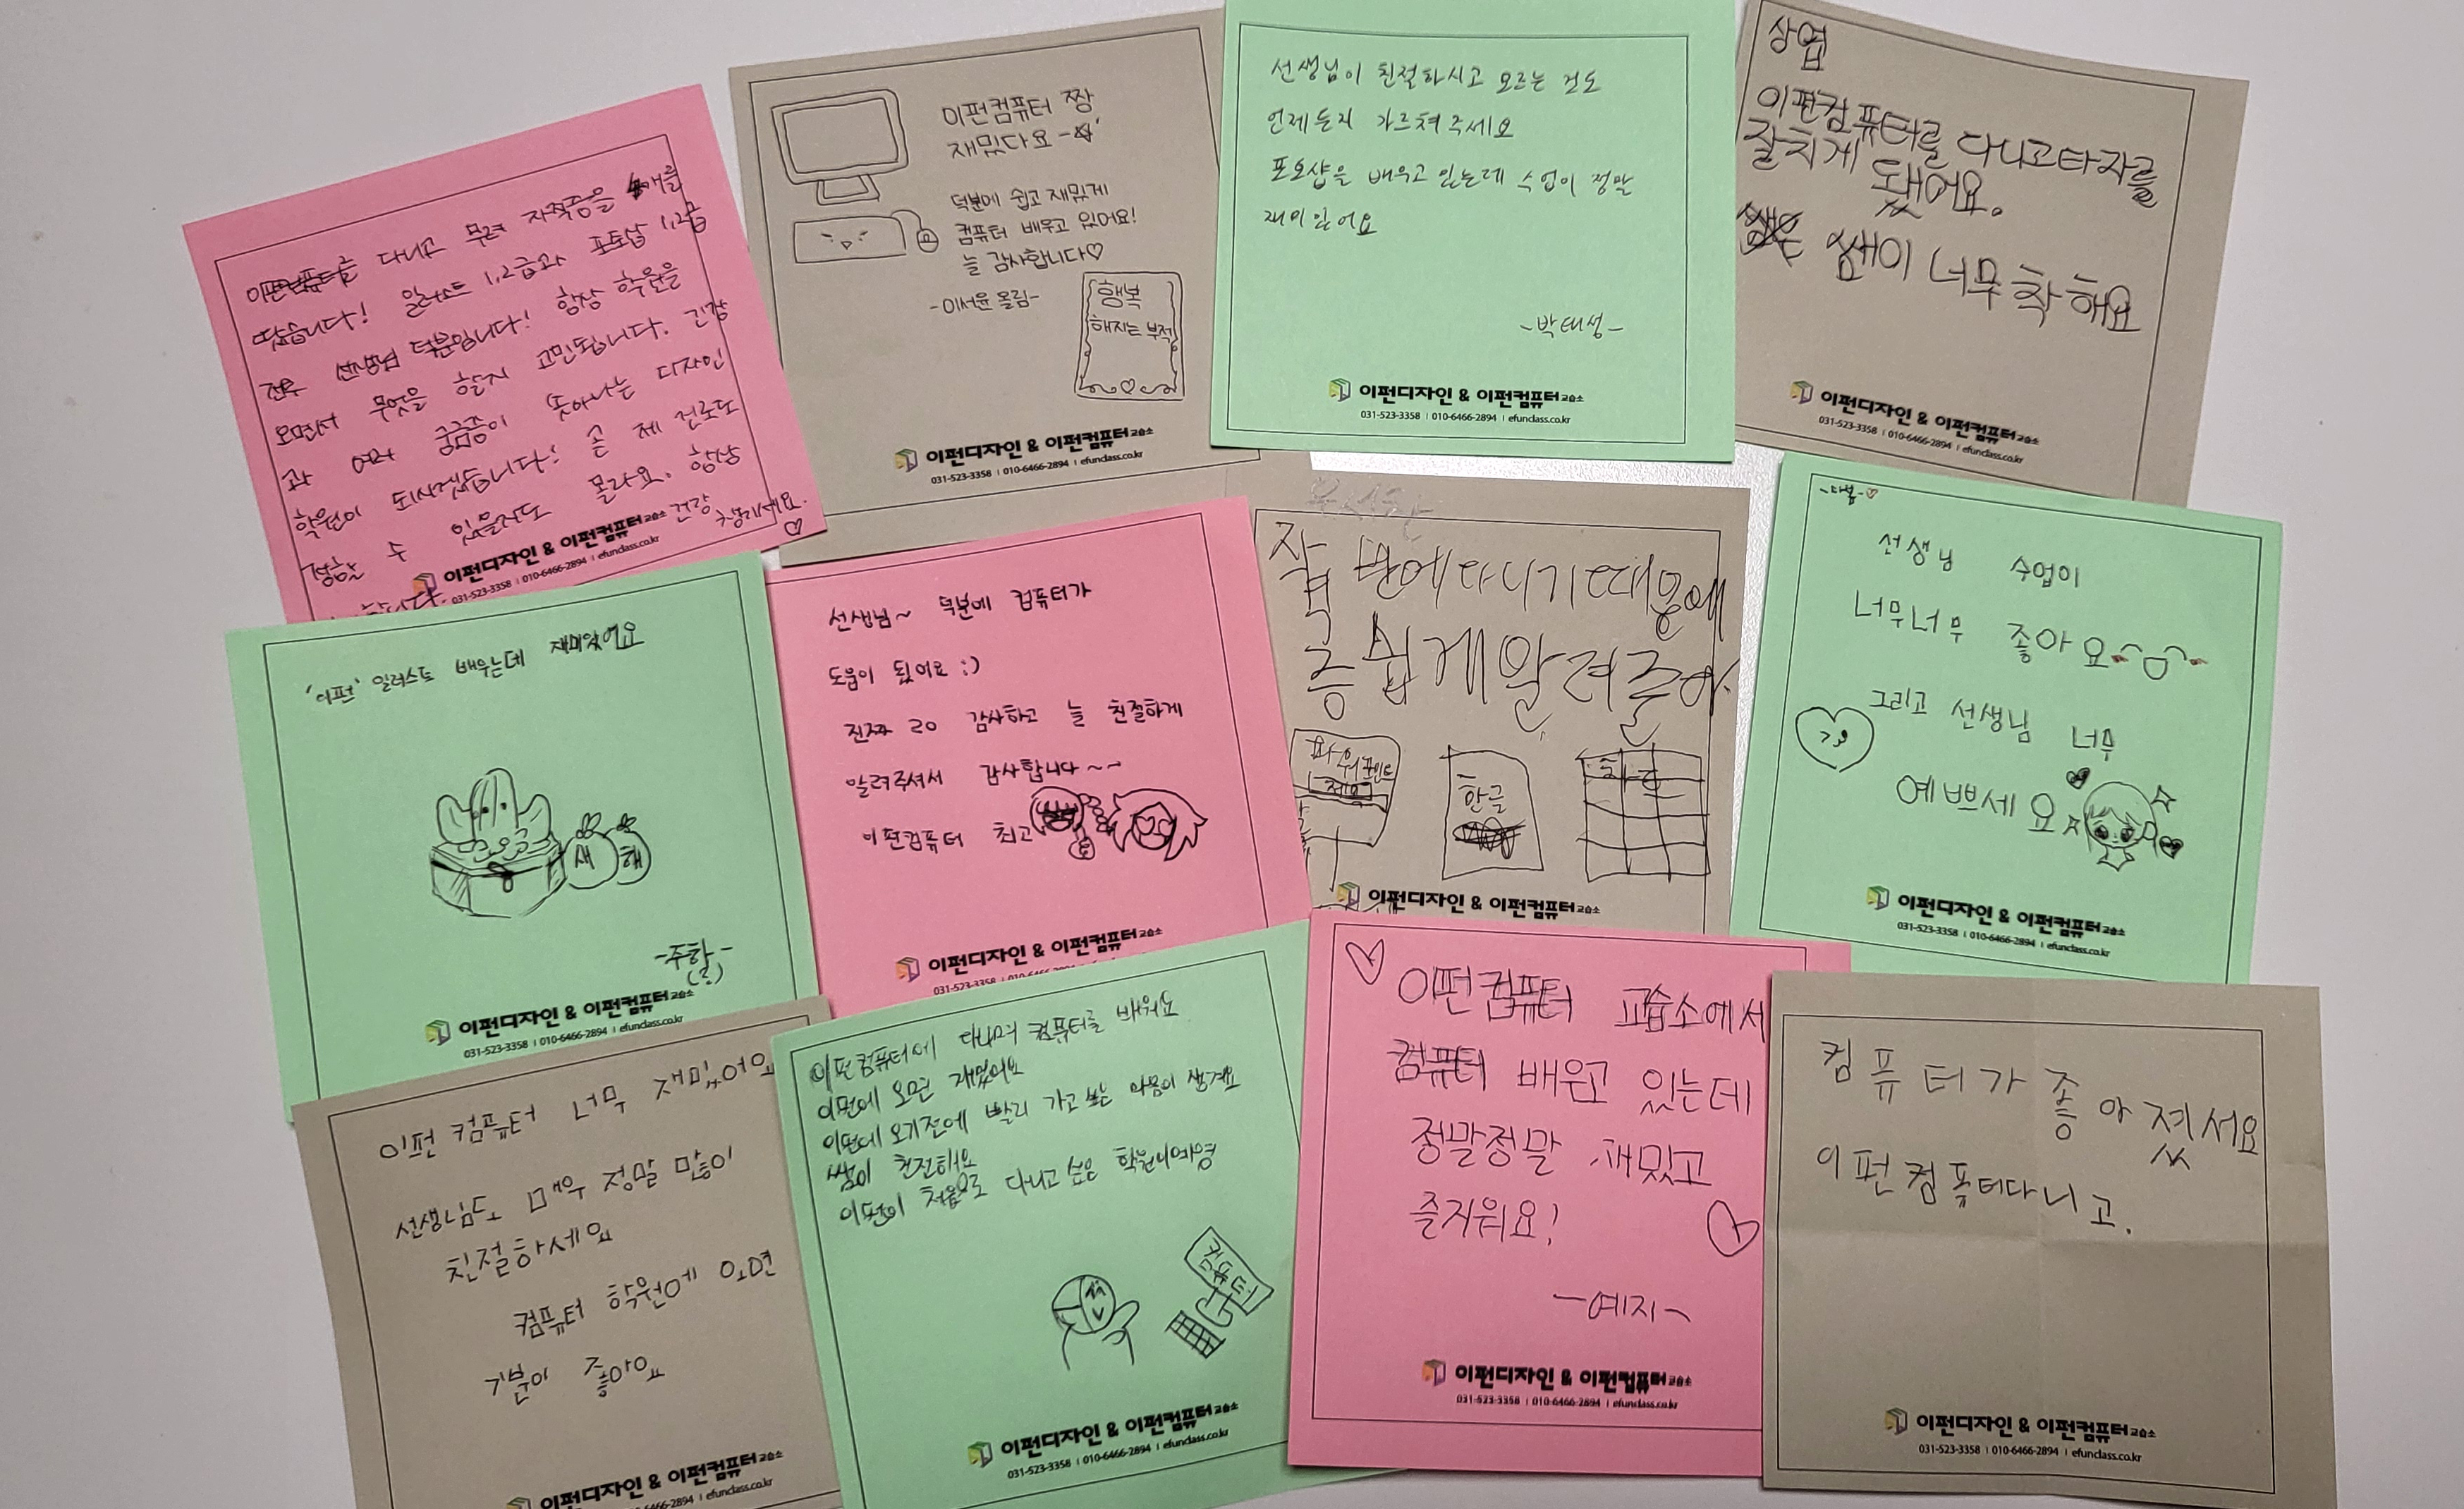 이펀컴퓨터를 다니고 무려 자격증을 4개를
땄습니다! 일러스트 1,2급과 포토샵 1,2급
전부 선생님 덕분입니다! 항상 학원을
오면서 무엇을 할지 고민됩니다. 긴장
과 여러 궁금증이 솟아나는 디자인
학원이 되시겠습니다! 곧 제 진로도
정할 수 있을지도 몰라요. 항상
건강 챙기세요. ♡
합니다.
이펀디자인 & 이펀컴퓨터교습소
031-523-3358 | 010-6466-2894 | efunclass.co.kr
이펀컴퓨터 짱
재밌다요-☆
덕분에 쉽고 재밌게
컴퓨터 배우고 있어요!
늘 감사합니다♡
-이서윤 올림-
행복
해지는 부적
이펀디자인 & 이펀컴퓨터교습소
031-523-3358 | 010-6466-2894 | efunclass.co.kr
선생님이 친절하시고 모르는 것도
언제든지 가르쳐주세요
포오샵을 배우고 있는데 수업이 정말
재미있어요
-박태성-
이펀디자인 & 이펀컴퓨터교습소
031-523-3358 | 010-6466-2894 | efunclass.co.kr
상엽
이펀컴퓨터를 다니고타자를
잘치게 됐어요.
쌤이 너무 착해요
이펀디자인 & 이펀컴퓨터교습소
031-523-3358 | 010-6466-2894 | efunclass.co.kr
'이펀' 일러스트 배우는데 재미있어요
새해
-주하-
이펀디자인 & 이펀컴퓨터교습소
031-523-3358 | 010-6466-2894 | efunclass.co.kr
선생님~ 덕분에 컴퓨터가
도움이 됬어요 :)
진짜 감사하고 늘 친절하게
알려주셔서 감사합니다~~
이펀컴퓨터 최고
이펀디자인 & 이펀컴퓨터교습소
031-523-3358 | 010-6466-2894
쉽게알려줄
파워포인트
제목
한글
이펀디자인 & 이펀컴퓨터교습소
-다봄-♡
선생님 수업이
너무너무 좋아요
그리고 선생님 너무
예쁘세요
이펀디자인 & 이펀컴퓨터교습소
031-523-3358 | 010-6466-2894 | efunclass.co.kr
이펀 컴퓨터 너무 재미있어요
선생님도 매우 정말 많이
친절하세요
컴퓨터 학원에 오면
기분이 좋아요
이펀디자인 & 이펀컴퓨터교습소
010-6466-2894 | efunclass.co.kr
이펀컴퓨터에 다니며 컴퓨터를 배워요
이펀에 오면 재밌어요
이펀에 오기전에 빨리 가고 싶은 마음이 생겨요
쌤이 친절해요
이펀이 처음으로 다니고 싶은 학원이예영
컴퓨터
이펀디자인 & 이펀컴퓨터교습소
031-523-3358 | 010-6466-2894 | efunclass.co.kr
이펀컴퓨터 교습소에서
컴퓨터 배우고 있는데
정말정말 재밌고
즐거워요!
-예지-
이펀디자인 & 이펀컴퓨터교습소
031-523-3358 | 010-6466-2894 | efunclass.co.kr
컴퓨터가 좋아젔서요
이펀컴퓨터다니고.
이펀디자인 & 이펀컴퓨터교습소
031-523-3358 | 010-6466-2894 | efunclass.co.kr